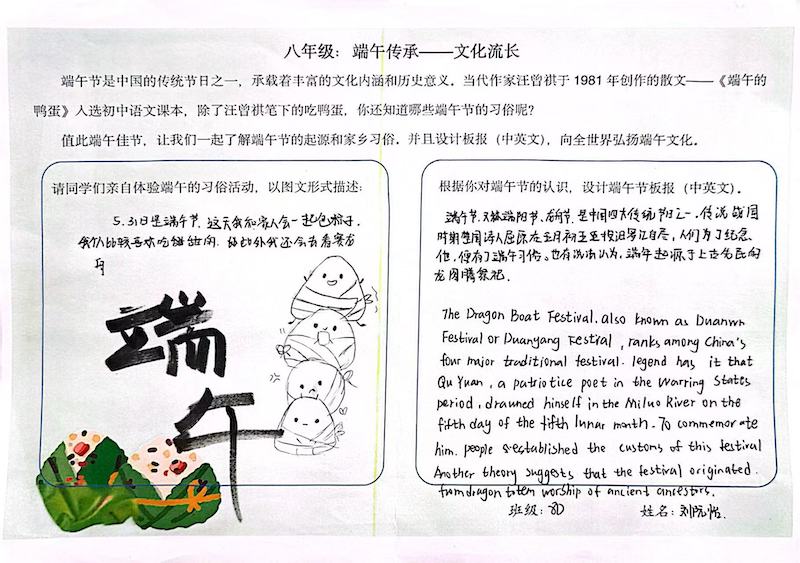 八年级：端午传承——文化流长
端午节是中国的传统节日之一，承载着丰富的文化内涵和历史意义。当代作家汪曾祺于1981年创作的散文——《端午的
鸭蛋》入选初中语文课本，除了汪曾祺笔下的吃鸭蛋，你还知道哪些端午节的习俗呢？
值此端午佳节，让我们一起了解端午节的起源和家乡习俗。并且设计板报（中英文），向全世界弘扬端午文化。
请同学们亲自体验端午的习俗活动，以图文形式描述：
5.31日是端午节，这天我和家人会一起包粽子，
我们比较喜欢吃甜粽肉，除此外我还会去看赛龙
舟
端午
根据你对端午节的认识，设计端午节板报（中英文）。
端午节，又称端阳节、龙舟节，是中国四大传统节日之一。传说战国
时期楚国诗人屈原在五月初五投汨罗江自尽，人们为了纪念
他，便有了端午习俗。也有说法认为，端午起源于上古先民的
龙图腾祭祀。
The Dragon Boat Festival, also known as Duanwn
Festival or Duanyang Festival, ranks among China's
four major traditional festival. legend has it that
Qu Yuan, a patriotice poet in the Warring States
period, drawned himself in the Miluo River on the
fifth day of the fifth lunar month. To commemorate
him, people established the customs of this festival
Another theory suggests that the festival originated.
from dragon totem worship of ancient ancestors.
班级：8D 姓名：刘阮怡